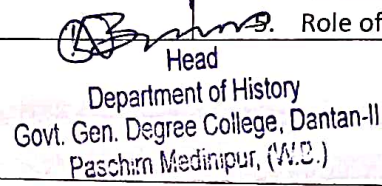 5. Role of
Head
Department of History
Govt. Gen. Degree College, Dantan-II
Paschim Medinipur, (W.B.)